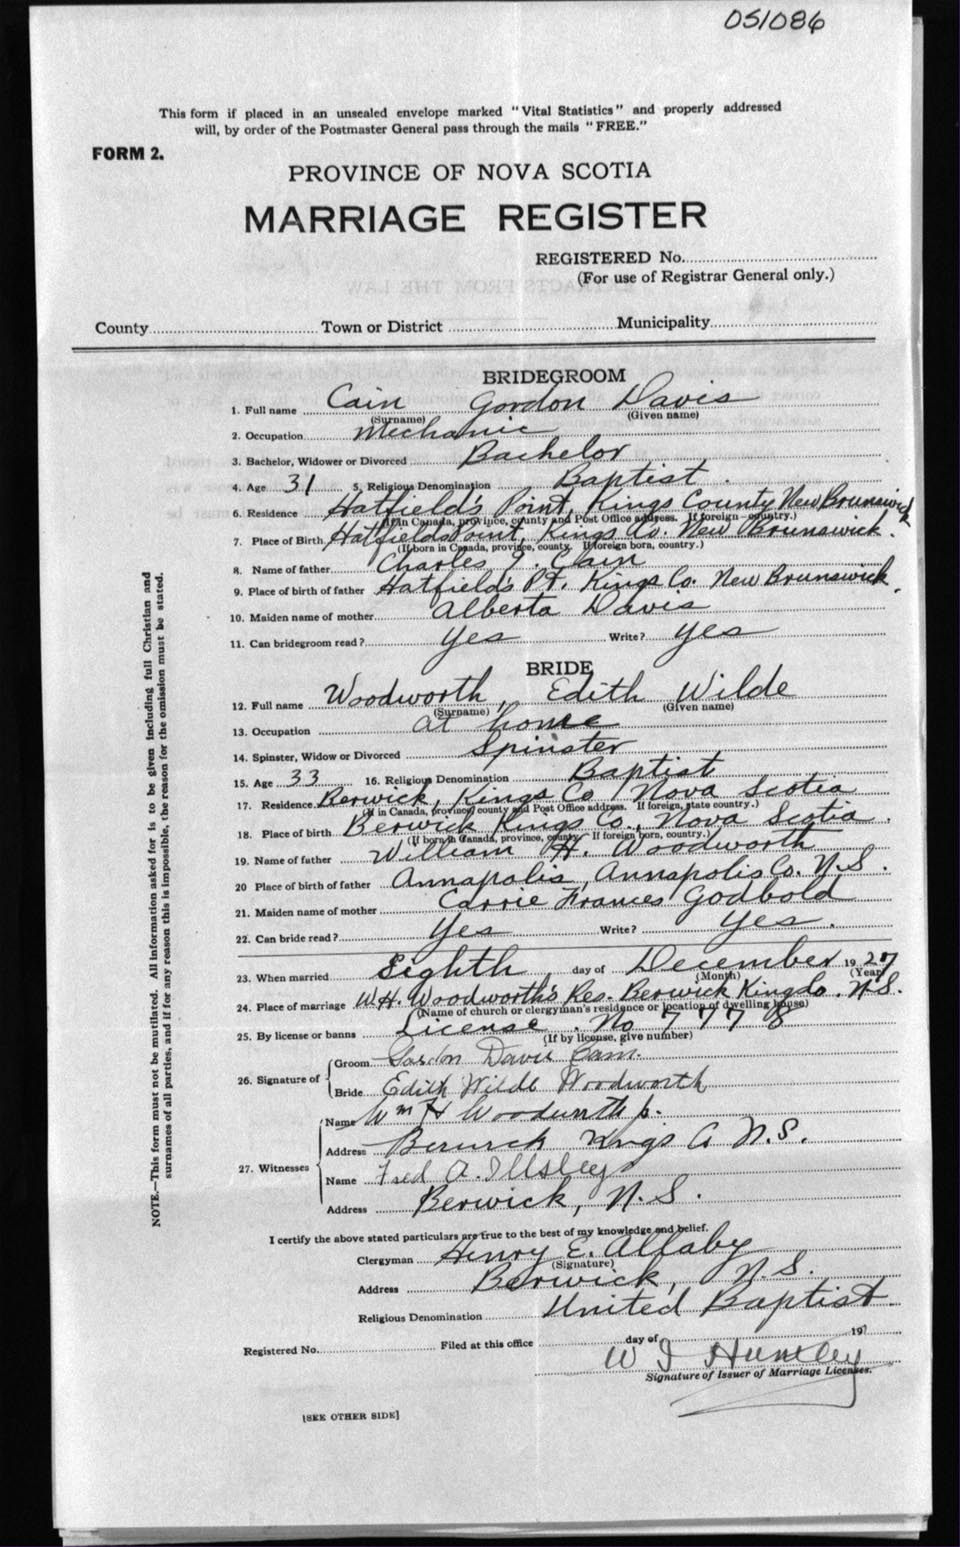 051086
This form if placed in an unsealed envelope marked "Vital Statistics" and properly addressed
will, by order of the Postmaster General pass through the mails "FREE."
FORM 2.
PROVINCE OF NOVA SCOTIA
MARRIAGE REGISTER
REGISTERED No.
(For use of Registrar General only.)
County Town or District Municipality
BRIDEGROOM
1. Full name Cain Gordon Davis
(Surname) (Given name)
2. Occupation Mechanic
3. Bachelor, Widower or Divorced Bachelor
4. Age 31 5. Religious Denomination Baptist
6. Residence Hatfield's Point, Kings County New Brunswick
(If in Canada, province, county and Post Office address. If foreign—country.)
7. Place of Birth Hatfields Point, Kings Co. New Brunswick.
(If born in Canada, province, county. If foreign born, country.)
8. Name of father Charles Cain
9. Place of birth of father Hatfield's Pt. Kings Co. New Brunswick.
10. Maiden name of mother Alberta Davis
11. Can bridegroom read? Yes Write? Yes
BRIDE
12. Full name Woodworth, Edith Wilde
(Surname) (Given name)
13. Occupation at home
14. Spinster, Widow or Divorced Spinster
15. Age 33 16. Religious Denomination Baptist
17. Residence Berwick, Kings Co Nova Scotia
(If in Canada, province, county and Post Office address. If foreign, state country.)
18. Place of birth Berwick Kings Co., Nova Scotia.
(If born in Canada, province, county. If foreign born, country.)
19. Name of father William H. Woodworth
20 Place of birth of father Annapolis, Annapolis Co. N.S.
21. Maiden name of mother Carrie Frances Godbold
22. Can bride read? Yes Write? Yes.
23. When married Eighth day of December 1927
(Month) (Year)
24. Place of marriage W.H. Woodworth's Res. Berwick Kings Co. N.S.
(Name of church or clergyman's residence or location of dwelling house)
25. By license or banns License. No 7778
(If by license, give number)
26. Signature of Groom Gordon Davis Cain.
Bride Edith Wilde Woodworth
27. Witnesses Name Wm H Woodworth
Address Berwick Kings Co N.S.
Name Fred A. Illsley
Address Berwick, N.S.
I certify the above stated particulars are true to the best of my knowledge and belief.
Clergyman Henry E. Allaby
(Signature)
Address Berwick, N.S.
Religious Denomination United Baptist
Registered No. Filed at this office day of 192
W I Huntley
Signature of Issuer of Marriage Licenses.
[SEE OTHER SIDE]
NOTE.—This form must not be mutilated. All information asked for is to be given including full Christian and
surnames of all parties, and if for any reason this is impossible, the reason for the omission must be stated.